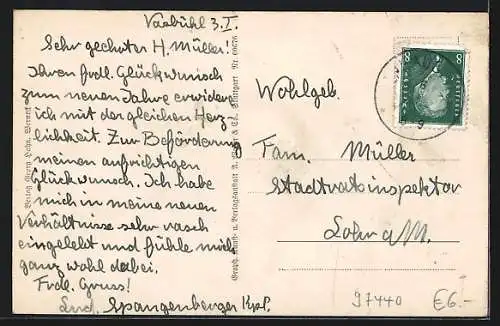 Vasbühl 3.I.
Sehr geehrter H. Müller!
Ihren frdl. Glückwunsch
zum neuen Jahre erwidere
ich mit der gleichen Herz-
lichkeit. Zur Beförderung
meinen aufrichtigen
Glückwunsch. Ich habe
mich in meine neuen
Verhältnisse sehr rasch
eingelebt und fühle mich
ganz wohl dabei.
Frdl. Gruss!
Lud. Spangenberger Kpl.
Verlag Georg
Graph. Kunst- u. Verlagsanstalt & Co. Stuttgart
8 8
Wohlgeb.
Fam. Müller
Stadtratsinspektor
Lohr a/M.
97440
€6.-